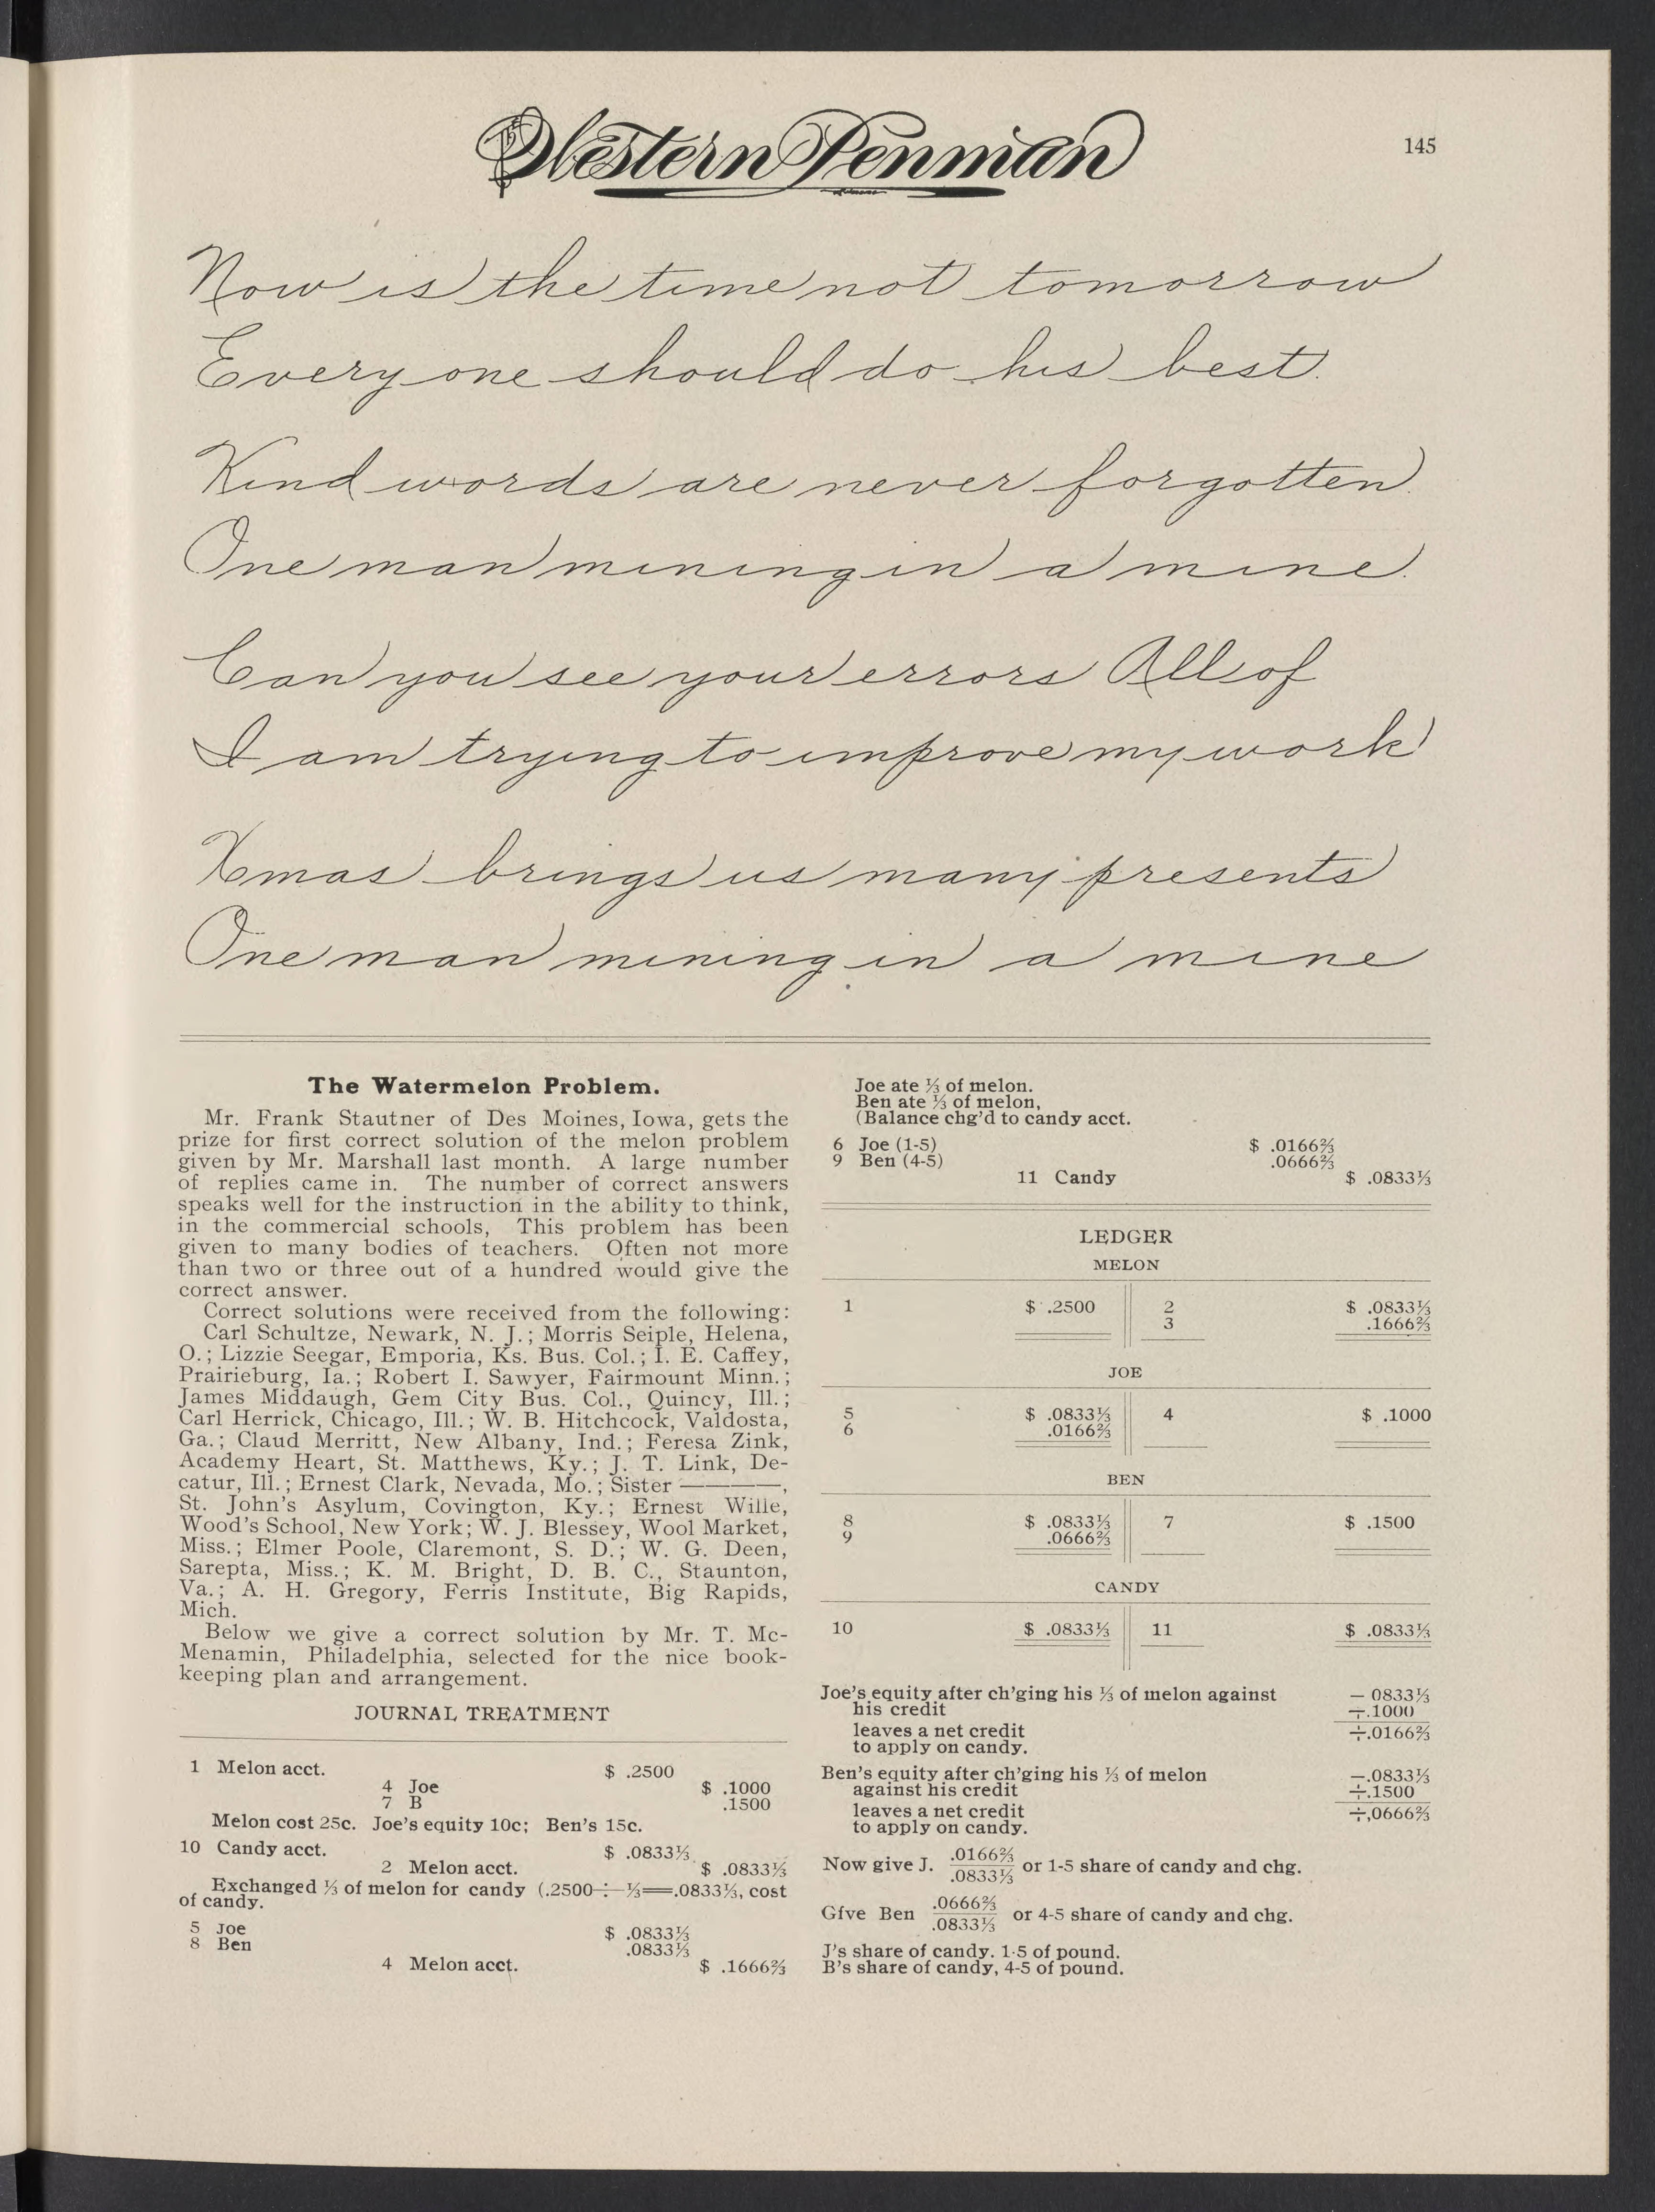 Western Penman
145
Now is the time not tomorrow
Every one should do his best.
Kind words are never forgotten.
One man mining in a mine.
Can you see your errors All of
I am trying to improve my work
Xmas brings us many presents
One man mining in a mine
The Watermelon Problem.
Mr. Frank Stautner of Des Moines, Iowa, gets the
prize for first correct solution of the melon problem
given by Mr. Marshall last month. A large number
of replies came in. The number of correct answers
speaks well for the instruction in the ability to think,
in the commercial schools, This problem has been
given to many bodies of teachers. Often not more
than two or three out of a hundred would give the
correct answer.
Correct solutions were received from the following:
Carl Schultze, Newark, N. J.; Morris Seiple, Helena,
O.; Lizzie Seegar, Emporia, Ks. Bus. Col.; I. E. Caffey,
Prairieburg, Ia.; Robert I. Sawyer, Fairmount Minn.;
James Middaugh, Gem City Bus. Col., Quincy, Ill.;
Carl Herrick, Chicago, Ill.; W. B. Hitchcock, Valdosta,
Ga.; Claud Merritt, New Albany, Ind.; Feresa Zink,
Academy Heart, St. Matthews, Ky.; J. T. Link, De-
catur, Ill.; Ernest Clark, Nevada, Mo.; Sister ————,
St. John's Asylum, Covington, Ky.; Ernest Wille,
Wood's School, New York; W. J. Blessey, Wool Market,
Miss.; Elmer Poole, Claremont, S. D.; W. G. Deen,
Sarepta, Miss.; K. M. Bright, D. B. C., Staunton,
Va.; A. H. Gregory, Ferris Institute, Big Rapids,
Mich.
Below we give a correct solution by Mr. T. Mc-
Menamin, Philadelphia, selected for the nice book-
keeping plan and arrangement.
JOURNAL TREATMENT
1 Melon acct. $ .2500
4 Joe $ .1000
7 B .1500
Melon cost 25c. Joe's equity 10c; Ben's 15c.
10 Candy acct. $ .0833⅓
2 Melon acct. $ .0833⅓
Exchanged ⅓ of melon for candy (.2500÷⅓=.0833⅓, cost
of candy.
5 Joe $ .0833⅓
8 Ben .0833⅓
4 Melon acct. $ .1666⅔
Joe ate ⅓ of melon.
Ben ate ⅓ of melon,
(Balance chg'd to candy acct.
6 Joe (1-5) $ .0166⅔
9 Ben (4-5) .0666⅔
11 Candy $ .0833⅓
LEDGER
MELON
1 $ .2500 2 $ .0833⅓
3 .1666⅔
JOE
5 $ .0833⅓ 4 $ .1000
6 .0166⅔
BEN
8 $ .0833⅓ 7 $ .1500
9 .0666⅔
CANDY
10 $ .0833⅓ 11 $ .0833⅓
Joe's equity after ch'ging his ⅓ of melon against — 0833⅓
his credit ÷.1000
leaves a net credit ÷.0166⅔
to apply on candy.
Ben's equity after ch'ging his ⅓ of melon —.0833⅓
against his credit ÷.1500
leaves a net credit ÷,0666⅔
to apply on candy.
Now give J. .0166⅔/.0833⅓ or 1-5 share of candy and chg.
Gfve Ben .0666⅔/.0833⅓ or 4-5 share of candy and chg.
J's share of candy. 1-5 of pound.
B's share of candy, 4-5 of pound.